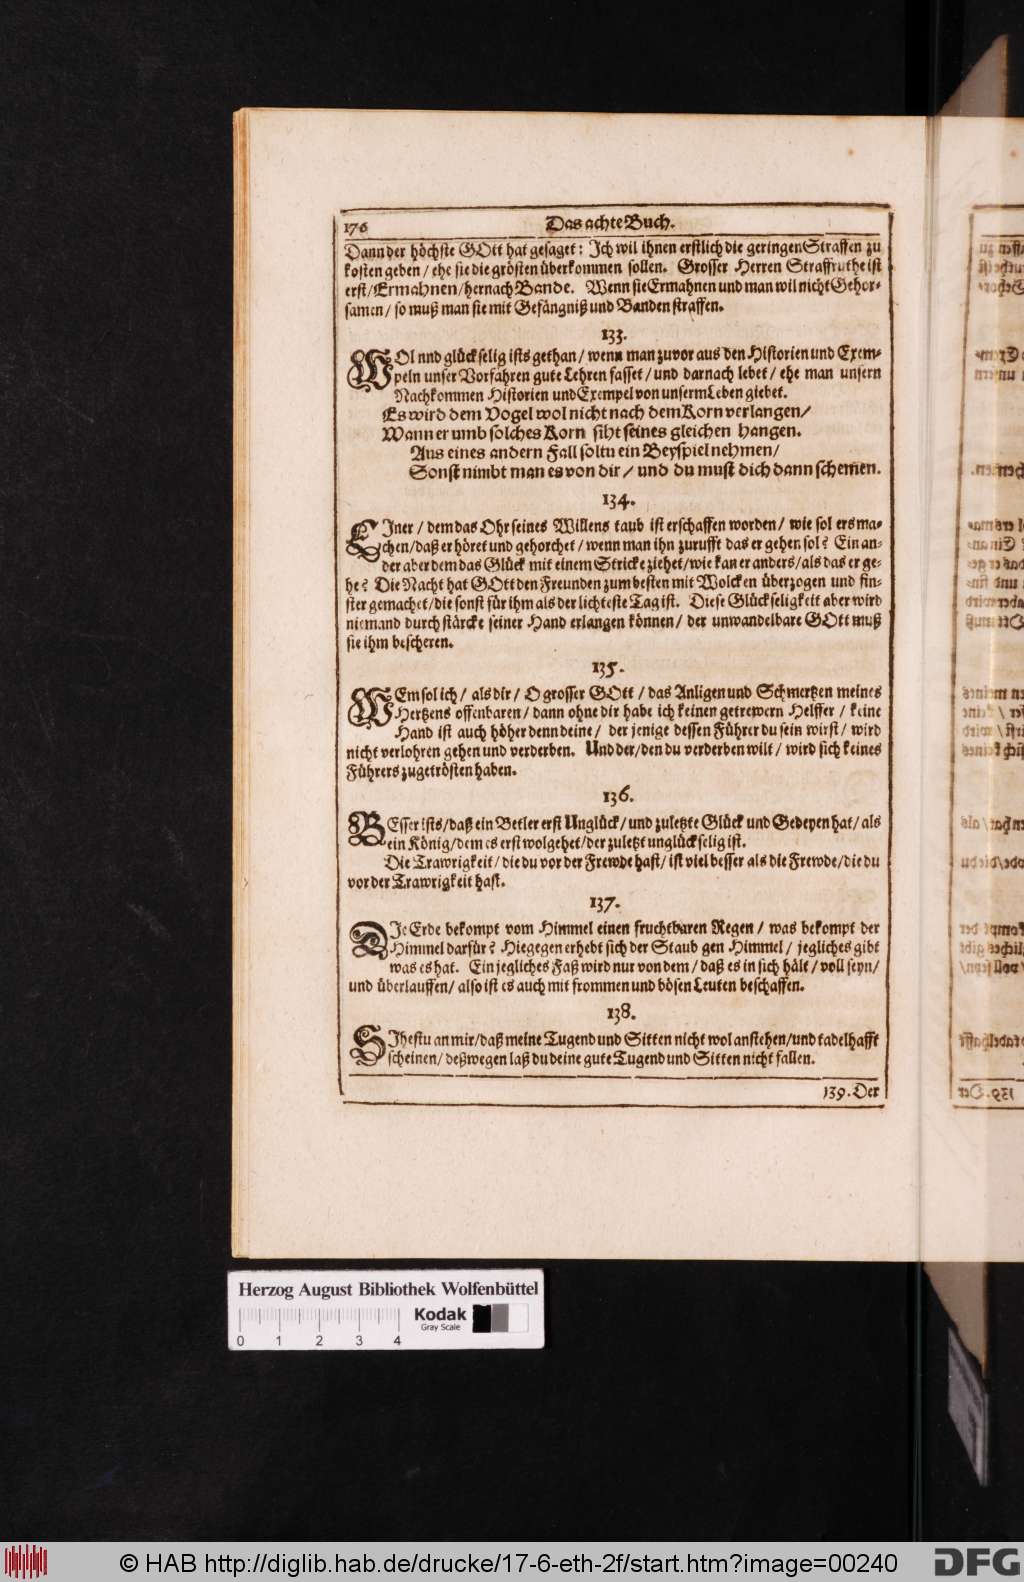 176 Das achte Buch.
Dann der höchste GOtt hat gesaget: Ich wil ihnen erstlich die geringen Straffen zu
kosten geben / ehe sie die grösten überkommen sollen. Grosser Herren Straffruthe ist
erst / Ermahnen / hernach Bande. Wenn sie Ermahnen und man wil nicht Gehor-
samen / so muß man sie mit Gefängniß und Banden straffen.
133.
WOl nnd glückselig ists gethan / wenn man zuvor aus den Historien und Exem-
peln unser Vorfahren gute Lehren fasset / und darnach lebet / ehe man unsern
Nachkommen Historien und Exempel von unserm Leben giebet.
Es wird dem Vogel wol nicht nach dem Korn verlangen /
Wann er umb solches Korn siht seines gleichen hangen.
Aus eines andern Fall soltu ein Beyspiel nehmen /
Sonst nimbt man es von dir / und du must dich dann schemen.
134.
EIner / dem das Ohr seines Willens taub ist erschaffen worden / wie sol ers ma-
chen / daß er höret und gehorchet / wenn man ihn zurufft das er gehen sol? Ein an-
der aber dem das Glück mit einem Stricke ziehet / wie kan er anders / als das er ge-
he? Die Nacht hat GOtt den Freunden zum besten mit Wolcken überzogen und fin-
ster gemachet / die sonst für ihm als der lichteste Tag ist. Diese Glückseligkeit aber wird
niemand durch stärcke seiner Hand erlangen können / der unwandelbare GOtt muß
sie ihm bescheren.
135.
WEm sol ich / als dir / O grosser GOtt / das Anligen und Schmertzen meines
Hertzens offenbaren / dann ohne dir habe ich keinen getrewern Helffer / keine
Hand ist auch höher denn deine / der jenige dessen Führer du sein wirst / wird
nicht verlohren gehen und verderben. Und der / den du verderben wilt / wird sich keines
Führers zugetrösten haben.
136.
BEsser ists / daß ein Betler erst Unglück / und zuletzte Glück und Gedeyen hat / als
ein König / dem es erst wolgehet / der zuletzt unglückselig ist.
Die Trawrigkeit / die du vor der Frewde hast / ist viel besser als die Frewde / die du
vor der Trawrigkeit hast.
137.
DIe Erde bekompt vom Himmel einen fruchtbaren Regen / was bekompt der
Himmel darfür? Hiegegen erhebt sich der Staub gen Himmel / jegliches gibt
was es hat. Ein jegliches Faß wird nur von dem / daß es in sich hält / voll seyn /
und überlauffen / also ist es auch mit frommen und bösen Leuten beschaffen.
138.
SIhestu an mir / daß meine Tugend und Sitten nicht wol anstehen / und tadelhafft
scheinen / deßwegen laß du deine gute Tugend und Sitten nicht fallen.
139. Der
Herzog August Bibliothek Wolfenbüttel
Kodak
Gray Scale
0 1 2 3 4
© HAB http://diglib.hab.de/drucke/17-6-eth-2f/start.htm?image=00240
DFG